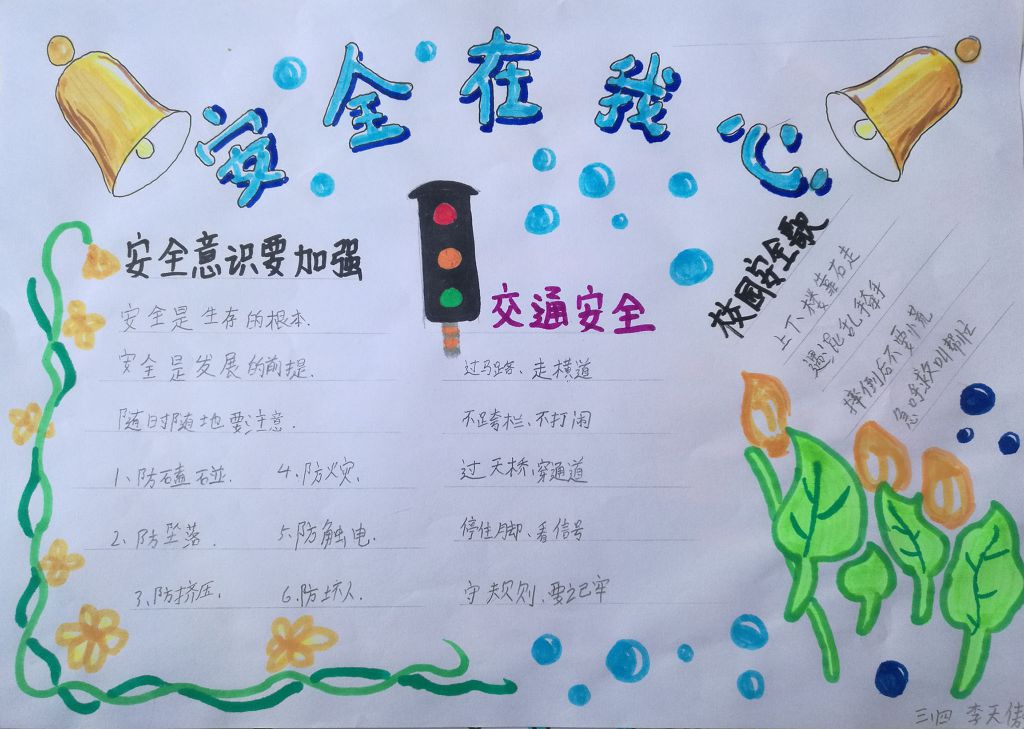 安全在我心
安全意识要加强
安全是生存的根本.
安全是发展的前提.
随时随地要注意.
1、防磕碰. 4、防火灾.
2、防坠落. 5、防触电.
3、防挤压. 6、防坏人.
交通安全
过马路、走横道
不跨栏、不打闹
过天桥、穿通道
停住脚、看信号
守规则、要记牢
校园安全歌
上下楼靠右走
遇混乱牵手
摔倒后不要慌
急呼救叫帮忙
三四 李天